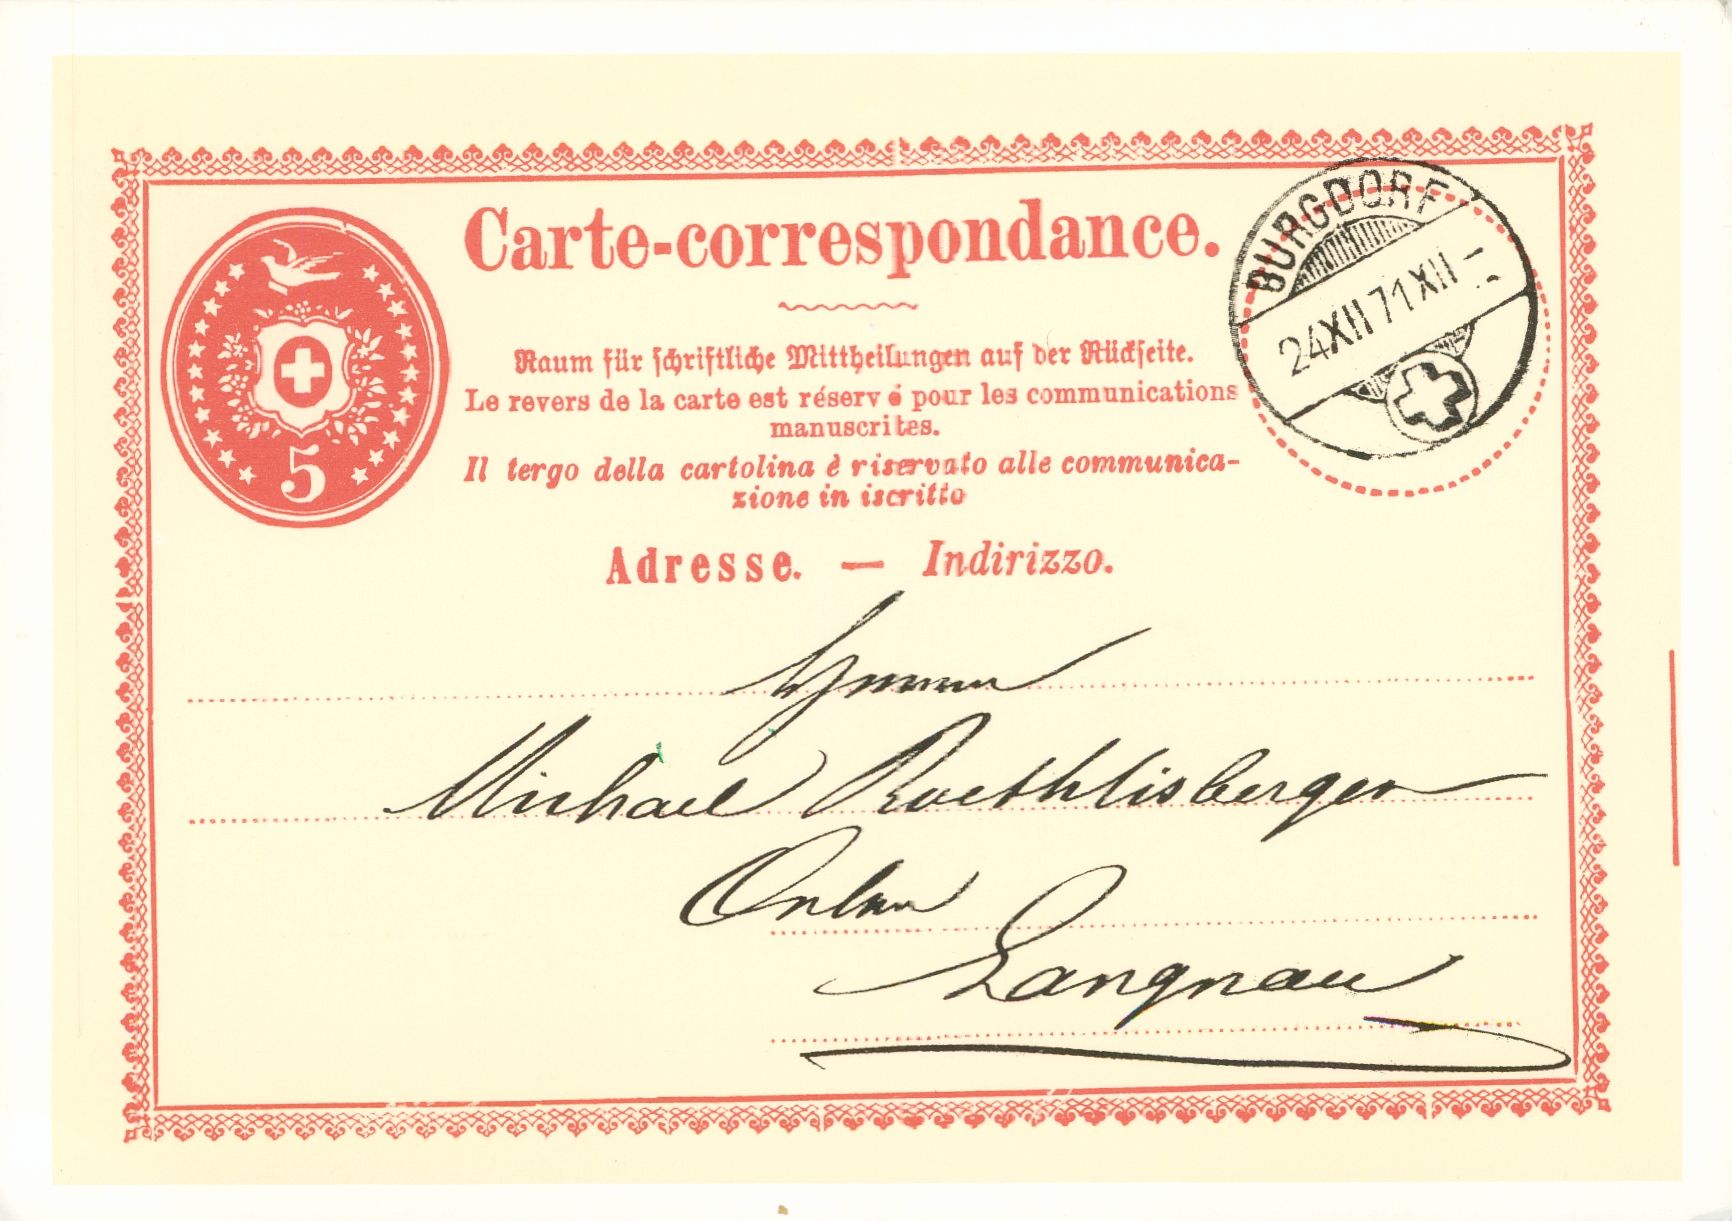 Carte-correspondance.
Raum für schriftliche Mittheilungen auf der Rückseite.
Le revers de la carte est réservé pour les communications
manuscrites.
Il tergo della cartolina è riservato alle communica-
zione in iscritto
5
BURGDORF
24 XII 71 XII
Adresse. — Indirizzo.
Michael Roethlisberger
Langnau